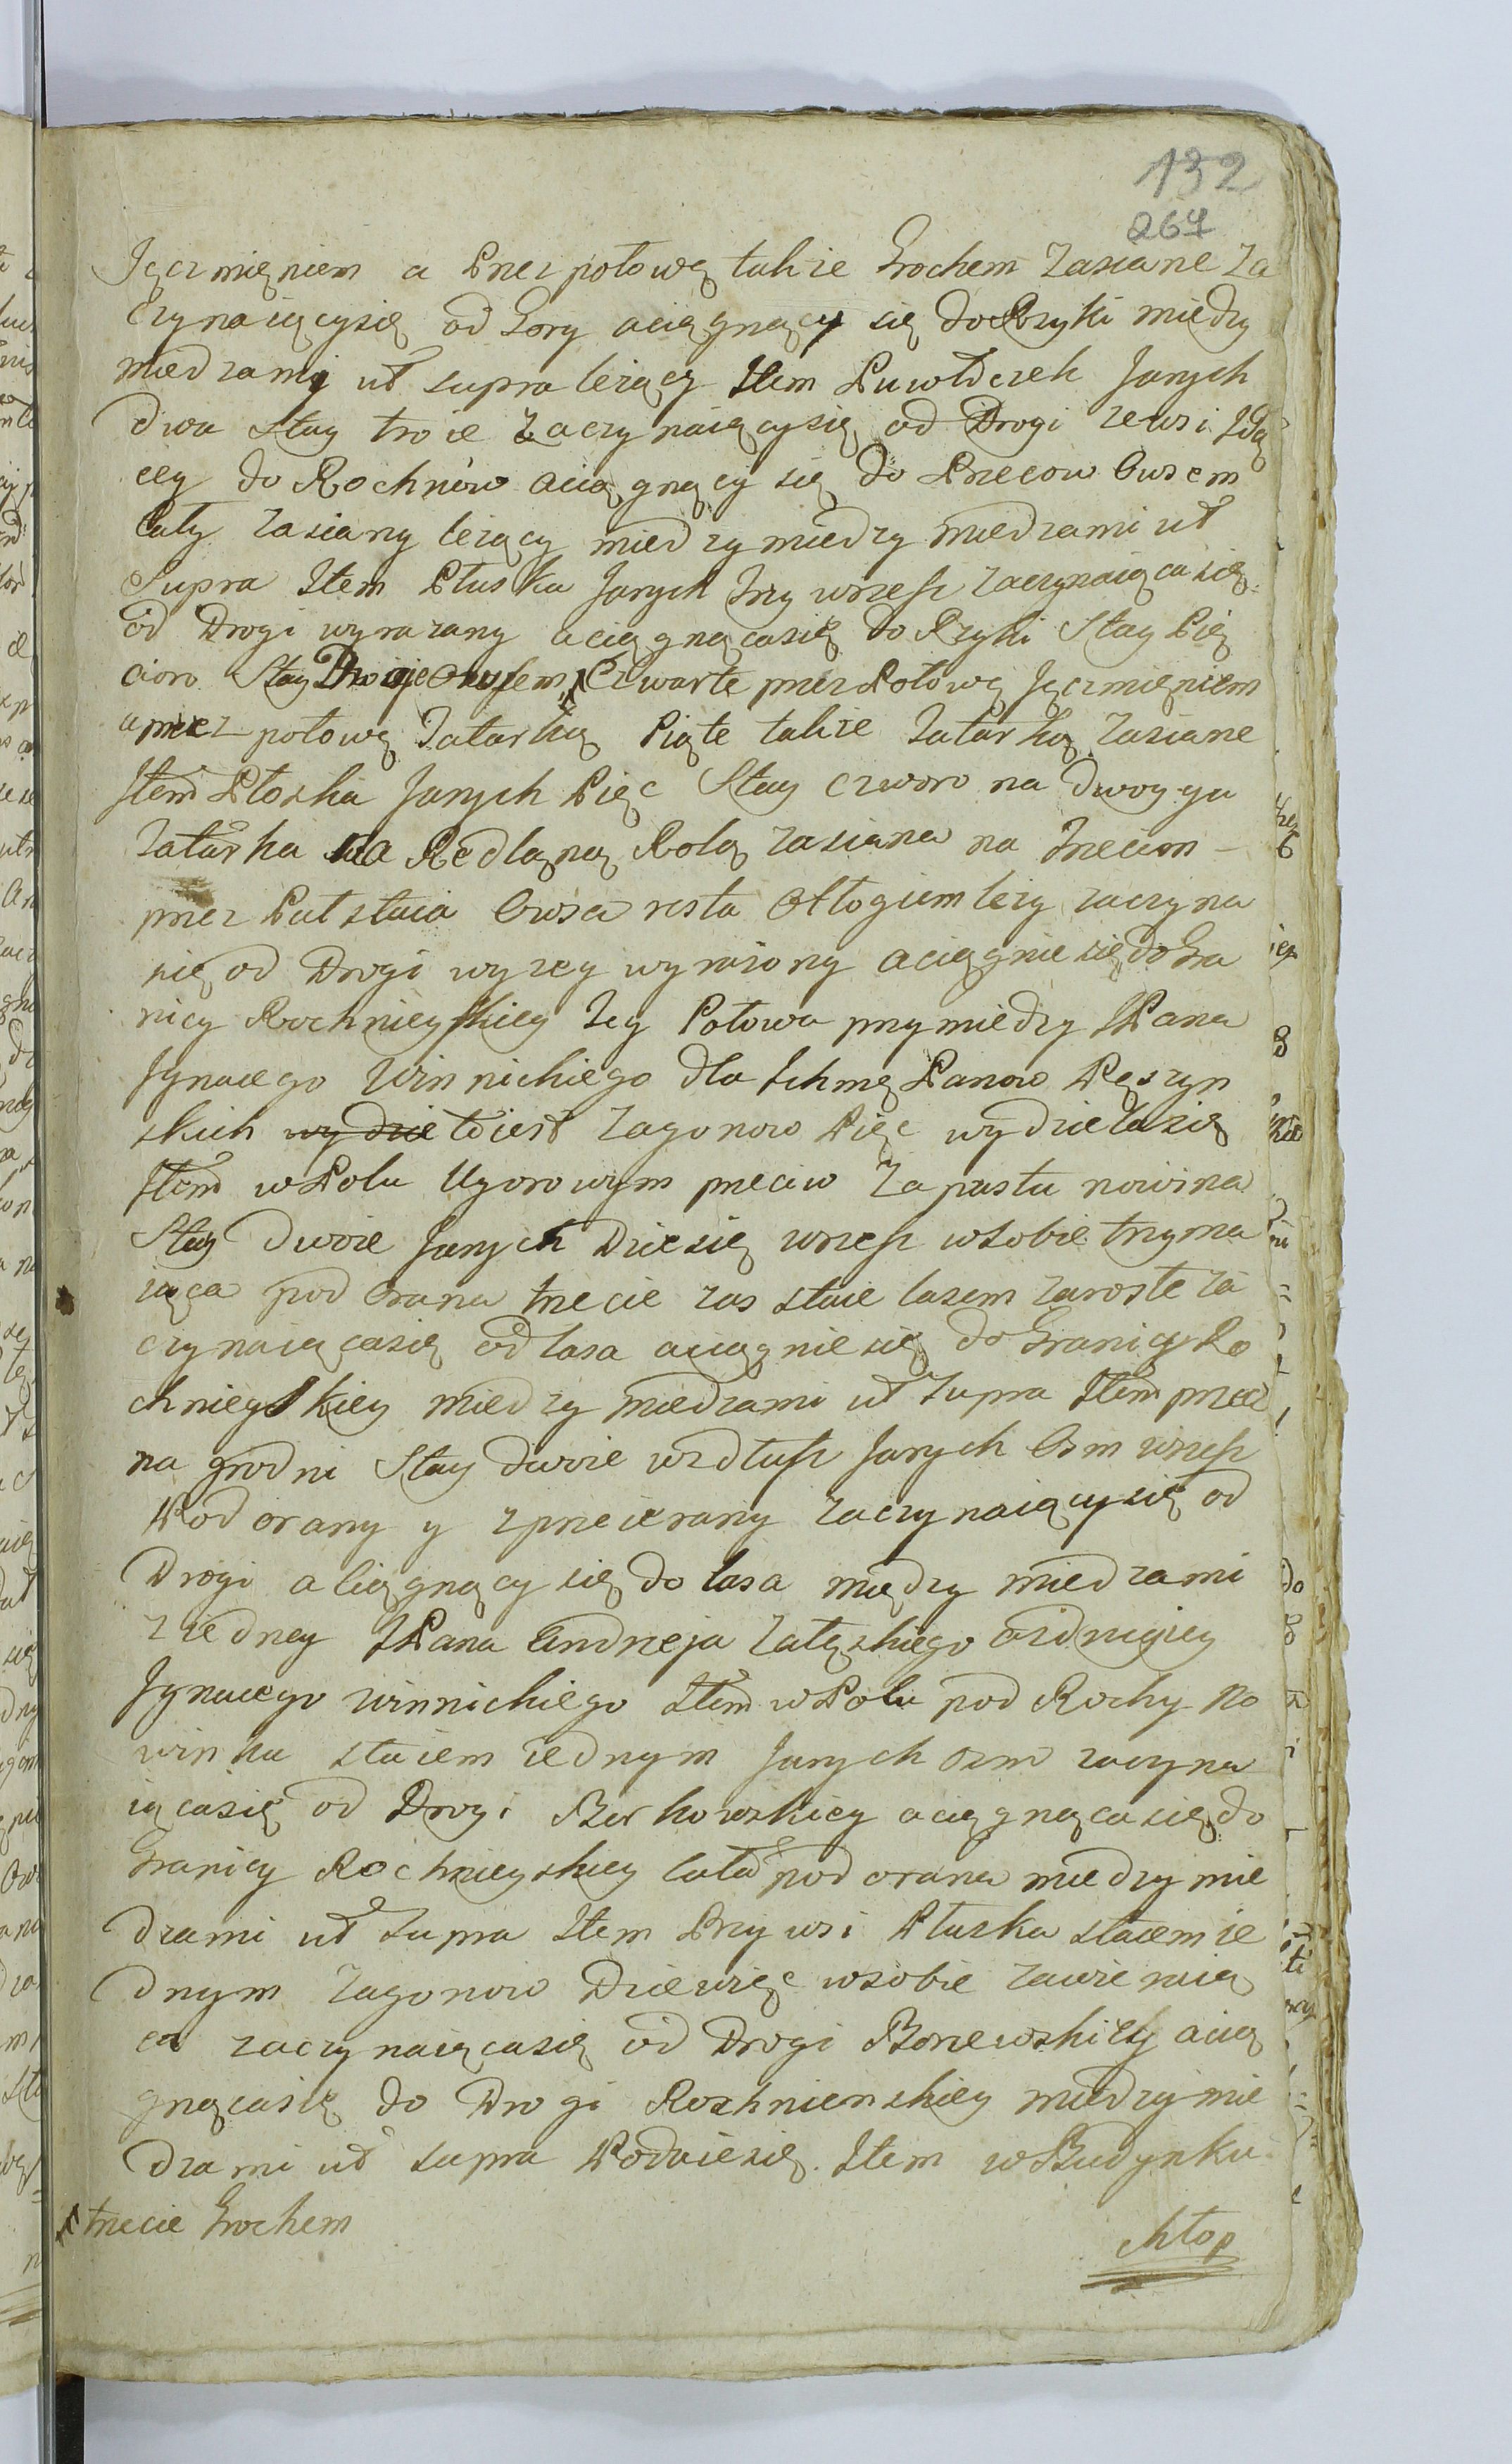 132
264
Jęczmięniem a Przez połowę takze Grochem Zasiane Za
czynaiącysię od Gory aciągnący się do Rzyki między
miedzami ut supra lezący Item Puwłoczek Jarych
dwa Stay troie Zaczynaiącysię od Drogi zewsi Idą
cey do Rochnów aciągnący się do Przecow Owsem
Cały zasiany lezący miedzy miedzy miedzami ut
Supra Item Płuska Jarych Trzy wrzesz zaczynaiąca się
od Drogi wyrazany aciągnącasię do Rzyki Stay Pię
cioro Stay Dwoie Owsem, Czwarte przez Połowę Jęczmięniem
a przez połowę Tatarką Piąte takze Tatarką zasiane
Item Płoska Jarych Pięc Stay czworo na dwoygu
Tatarka na Redlaną Rolą zasiana na Trzecim
przez Puł staia Owsa resta Ołłogiem lezy zaczyna
się od Drogi wyzey wyrazony aciągnie się do Gra
nicy Rochnieyskiey Tey Połowa przy miedzy JPana
Jgnacego Winnickiego dla Ichmę Panow Pęszyn
skich wydzie toiest Zagonow Pięc wydziela się
Item w Polu Ugorowym przeciw Zapustu nowina
Stay dwoie Jarych Dziesię wrzesz wsobie trzyma
iąca pod Orana trzecie zas staie lasem zarosłe za
czynaiącasię od lasa aciągnie się do Granicy Ro
chnieyskiey miedzy miedzami ut supra Item przed
na grodni Stay dwoie wzdłusz Jarych Osm wrzesz
Pod orany y zprzecierany zaczynaiącysię od
Drogi aciągnący się do lasa między miedzami
z iedney JPana Andrzeja Załęskiego azdrugiey
Jgnacego Winnickiego Item w Polu pod Rochy No
winka staiem iednym Jarych osm zaczyna
iącasię od Drogi Berkowskiey aciągnącasię do
Granicy Rochnieyskiey Cała pod orana miedzy mie
dzami ut supra Item Przy wsi Płuska staiem ie
dnym Zagonow Dziewięc wsobie zawieraią
ca zaczynaiącasię od Drogi Borzewskiey acią
gnącasię do Drogi Rozhnienskiey miedzy mie
dzami ut supra Podaiesię. Item w Budynku
trzecie Grochem
chłop